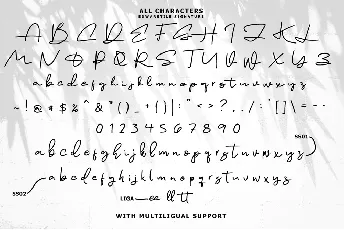 ALL CHARACTERS
A B C D E F G H I J K L
M N O P Q R S T U V W X Y Z
a b c d e f g h i j k l m n o p q r s t u v w x y z
~ ! @ # $ % ^ & * ( ) _ + { } | : " < > ? , . / ; ' [ ] \ = - ·
0 1 2 3 4 5 6 7 8 9 0
SS01
a b c d e f g h i j k l m n o p q r s t u v w x y z
SS02
a b c d e f g h i j k l m n o p q r s t u v w x y z
LIGA ee ll tt
WITH MULTILIGUAL SUPPORT